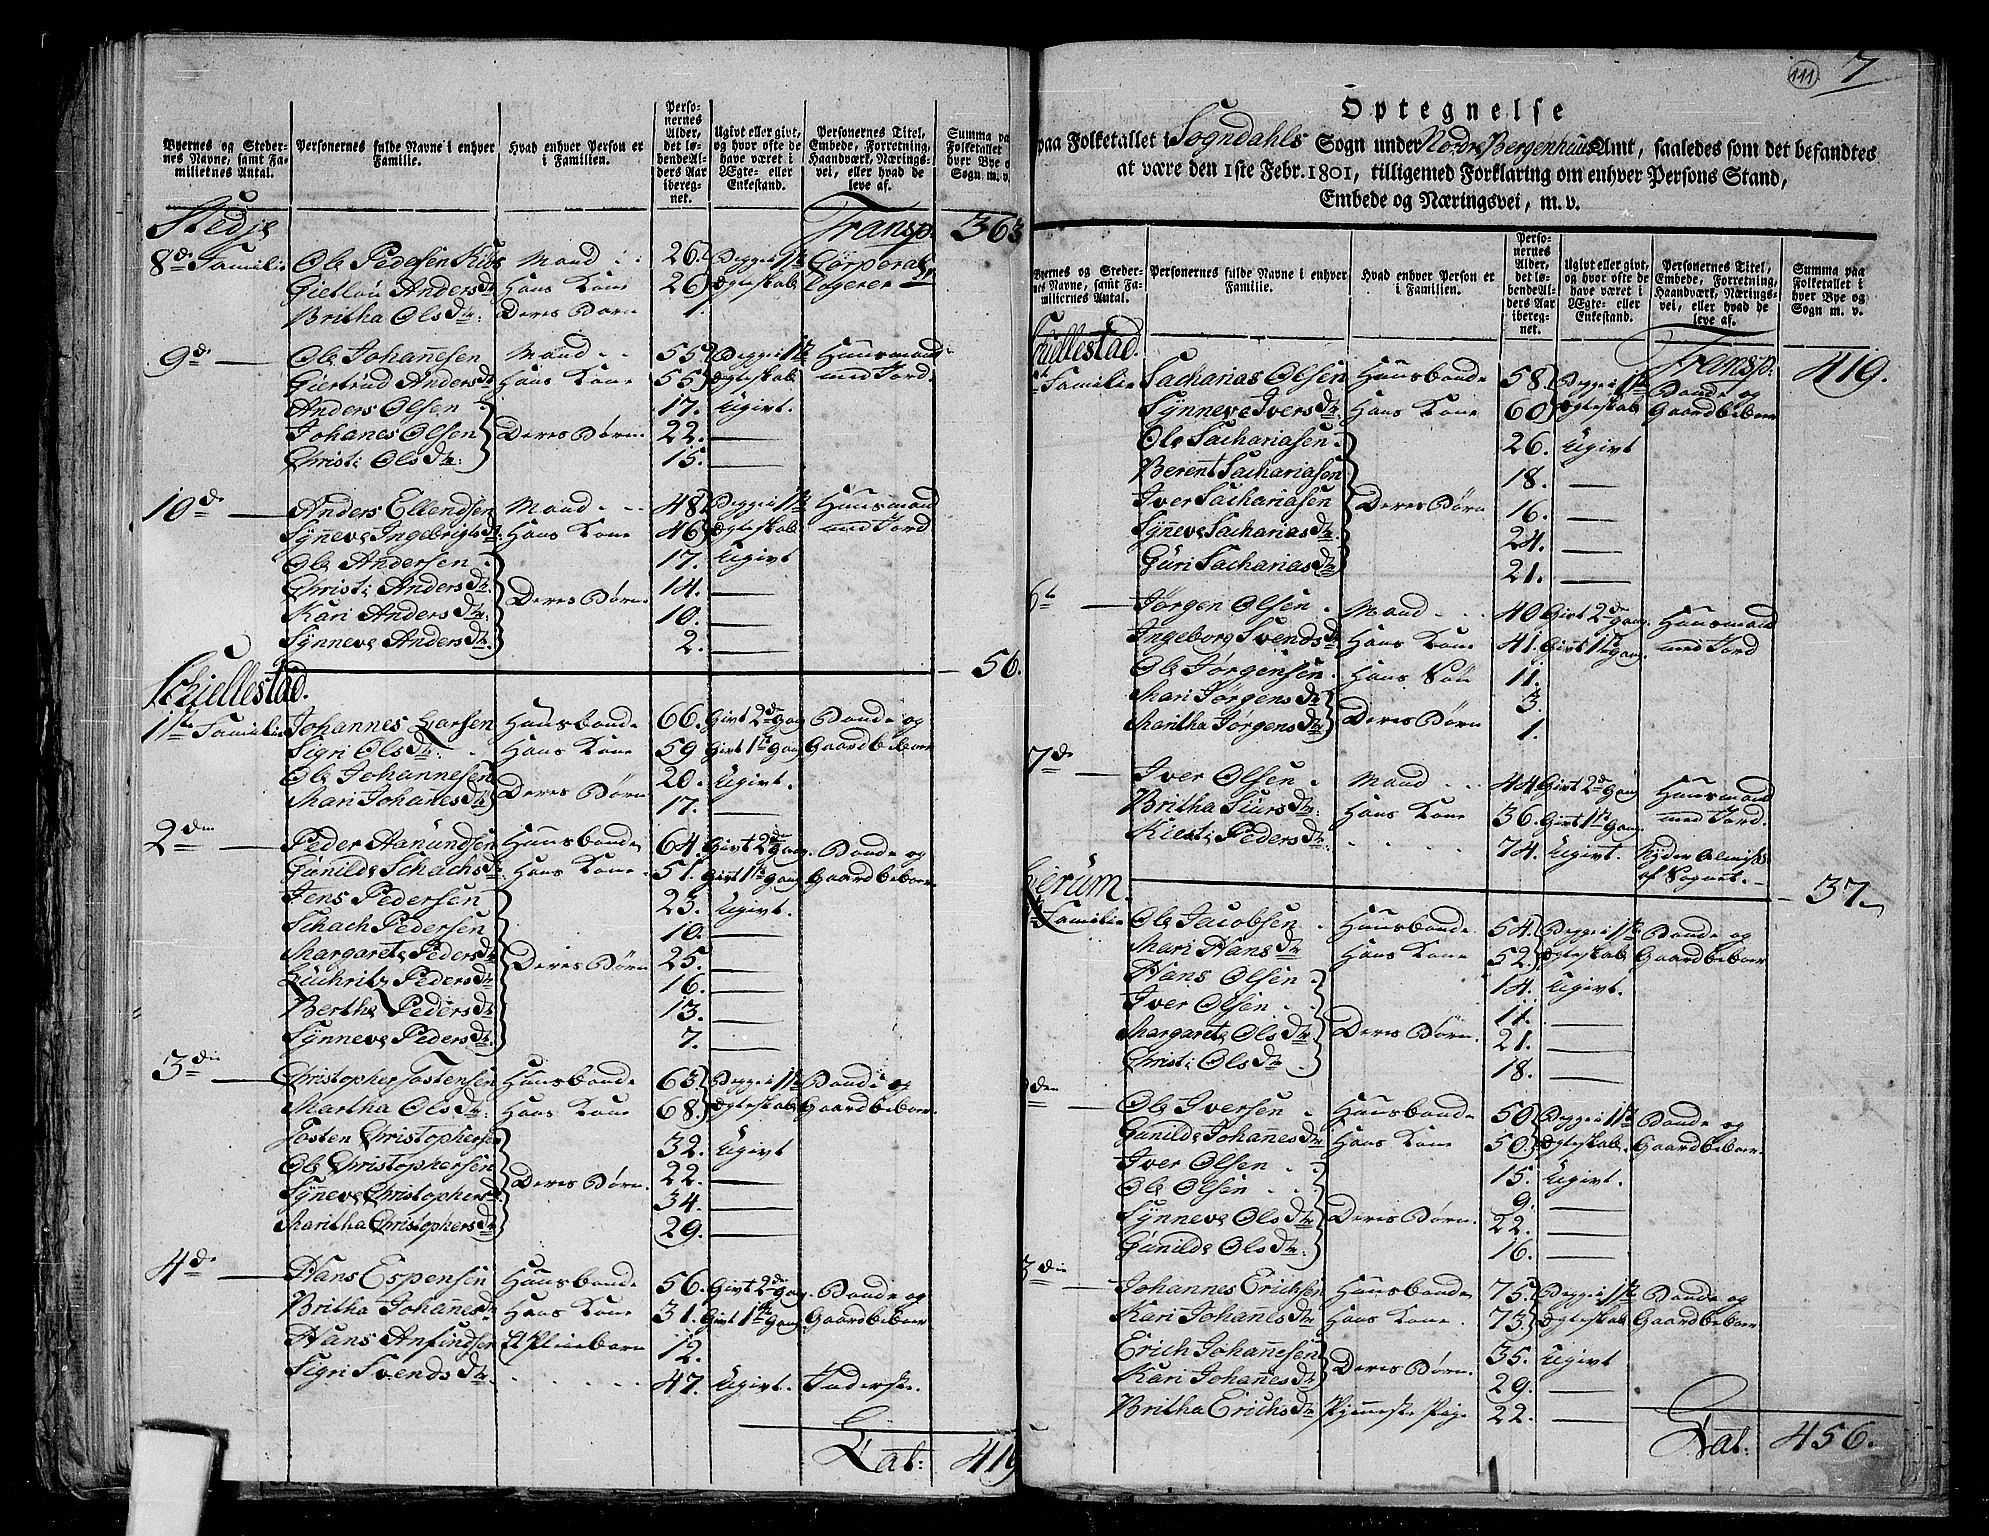 Byernes og Steder-
nes Navne, samt Fa-
milietnes Antal.
Personernes fulde Navne i enhver
Familie.
Hvad enhver Person er
i Familien.
Perso-
nernes
Alder,
det lø-
bende Al-
ders Aar
ibereg-
net.
Ugivt eller givt,
og hvor ofte de
have været i
Ægte- eller
Enkestand.
Personernes Titel,
Embede, Forretning,
Haandværk, Nærings-
vei, eller hvad de
leve af.
Summa pa
Folketallet
hver Bye o
Sogn m. v.
Stedje Transp. 363
8de Familie Ole Pedersen Mand 26. Begge i 1te Corporal
Gietlou Anders Dtr Hans Kone 26 Ægteskab Logerer
Britha Ols Dtr: Deres Børn 1.
9de Ole Johannesen Mand 55. Begge i 1te Huusmand
Giertrud Anders Dtr Hans Kone 55 Ægteskab med Jord.
Anders Olsen 17. Ugivt.
Johanes Olsen Deres Børn 22.
Christi Ols Dtr: 15.
10de Anders Ellendsen Mand 48. Begge i 1te Huusmand
Synneve Ingebrigts Dtr. Hans Kone 46 Ægteskab med Jord
Ole Andersen 17. Ugivt
Christi Anders Dtr. Deres Børn. 14.
Kari Anders Dtr: 10.
Synneve Anders Dtr. 2.
56.
Schiellestad.
1ste Familie Johannes Larsen Huusbonde 66. Givt 2de Gang Bonde og
Sigri Ols Dtr. Hans Kone 59 Givt 1te Gang Gaardbeboer
Ole Johannesen Deres Børn 20. Ugivt.
Mari Johanes Dtr 17.
2den Peder Aamundsen Huusbonde 64. Givt 2de Gang. Bonde og
Gunilde Schachs Dtr Hans Kone 51. Givt 1te Gang Gaardbeboer
Jens Pedersen 23. Ugivt.
Schach Pedersen 10.
Margarete Peders Dtr Deres Børn 25.
Luchritz Peders Dtr 16.
Berthe Peders Dtr 13.
Synneve Peders Dtr. 7.
3die Christopher Tostensen Huusbonde 63. Begge i 1te Bonde og
Martha Ols Dtr: Hans Kone 68. Ægteskab Gaardbeboer.
Tosten Christophersen 32. Ugivt
Ole Christophersen 22.
Synneve Christophers Dtr Deres Børn. 34.
Maritha Christophers Dtr 29.
4de Hans Espensen Huusbonde 56. Givt 2de Gang. Bonde og
Britha Johanes Dtr Hans Kone 31. Givt 1te Gang Gaardbeboer
Hans Anfindsen Et Pleiebarn 12.
Sigri Svends Dtr. 47. Ugivt.
Lat: 419
111. 7
Optegnelse
paa Folketallet i Sogndahls Sogn under Nordre Bergenhuus Amt, saaledes som det befandtes
at være den 1ste Febr. 1801, tilligemed Forklaring om enhver Persons Stand,
Embede og Næringsvei, m. v.
Byernes og Steder-
nes Navne, samt Fa-
miliernes Antal.
Personernes fulde Navne i enhver
Familie.
Hvad enhver Person er
i Familien.
Perso-
nernes
Alder,
det lø-
bende Al-
ders Aar
ibereg-
net.
Ugivt eller givt,
og hvor ofte de
have været i
Ægte- eller
Enkestand.
Personernes Titel,
Embede, Forretning,
Haandværk, Nærings-
vei, eller hvad de
leve af.
Summa paa
Folketallet i
hver Bye og
Sogn m. v.
chiellestad. Transp. 419.
Familie Sacharias Olsen Huusbonde 58. Begge i 1te Bonde og
Synneve Ivers Dtr. Hans Kone 60 Ægteskab Gaardbeboer
Ole Sachariasen 26. Ugivt
Berent Sachariasen 18.
Iver Sachariasen Deres Børn 16.
Synneve Sacharias Dtr 24.
Guri Sacharias Dtr 21.
6te Jørgen Olsen Mand 40 Givt 2de Gang. Huusmand
Ingeborg Svends Dtr Hans Kone 41. Givt 1te Gang. med Jord
Ole Jørgensen Hans Søn 11.
Mari Jørgens Dtr Deres Børn 3.
Maritha Jørgens Dtr 1.
7de Iver Olsen Mand 44 Givt 2de Gang Huusmand
Britha Siurs Dtr: Hans Kone 36. Givt 1te Gang. med Jord.
Kiersti Peders Dtr: 74. Ugivt. Nyder Almisse
af Sognet. 37
ierum.
Familie Ole Jacobsen Huusbonde 54. Begge i 1te Bonde og
Mari Hans Dtr Hans Kone 52. Ægteskab Gaardbeboer
Hans Olsen 14. Ugivt.
Iver Olsen 11.
Margarete Ols Dtr Deres Børn. 21.
Christi Ols Dtr. 18.
den Ole Iversen Huusbonde 50 Begge i 1te Bonde og
Gunilde Johannes Dtr Hans Kone 50. Ægteskab. Gaardbeboer.
Iver Olsen 15. Ugivt.
Ole Olsen 9.
Synneve Ols Dtr Deres Børn. 22.
Gunilde Ols Dtr: 16.
3die Johannes Erichsen Huusbonde 75. Begge i 1te Bonde og
Kari Johanes Dtr Hans Kone. 73. Ægteskab Gaardbeboer
Erich Johanesen Deres Børn. 35. Ugivt
Kari Johanes Dtr 29.
Britha Erichs Dtr Tienneste Pige. 22.
Lat: 456.